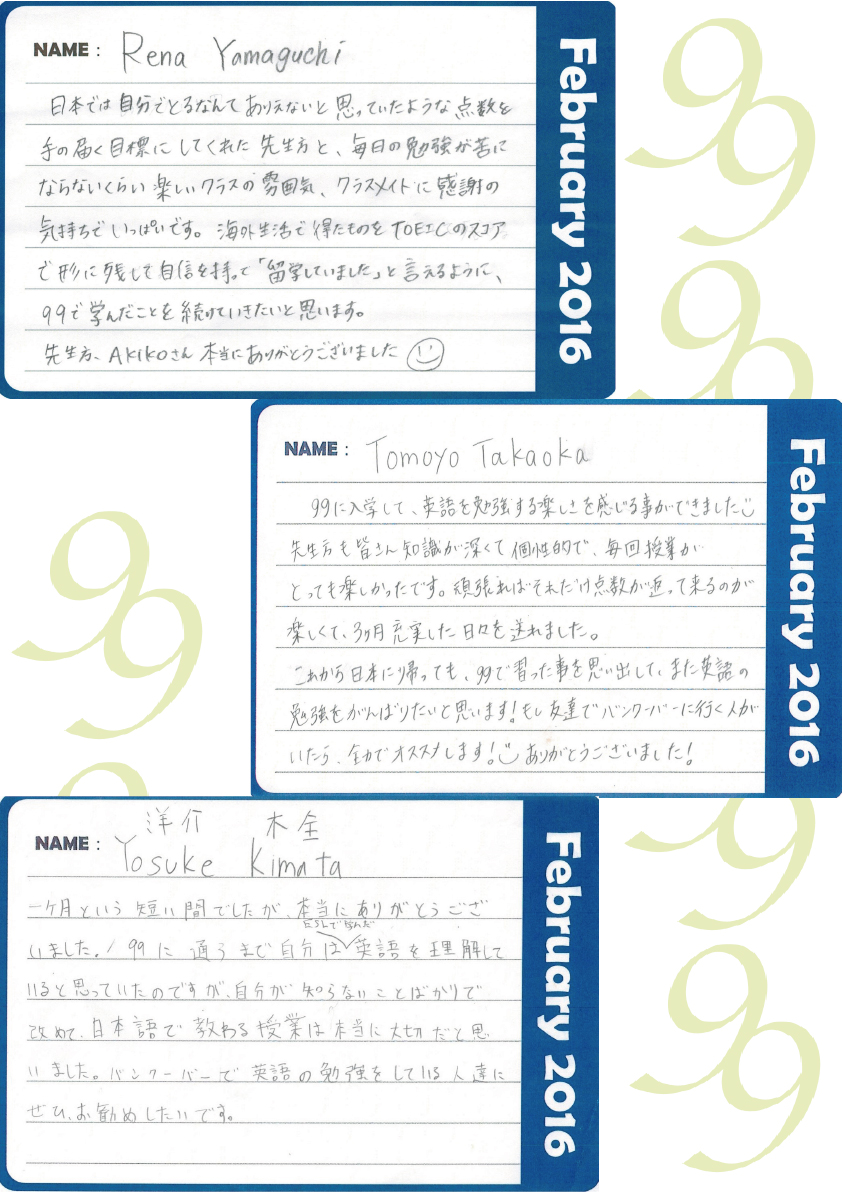 NAME : Rena Yamaguchi
日本では自分でとるなんてありえないと思っていたような点数を
手の届く目標にしてくれた先生方と、毎日の勉強が苦に
ならないくらい楽しいクラスの雰囲気、クラスメイトに感謝の
気持ちでいっぱいです。海外生活で得たものをTOEICのスコア
で形に残して自信を持って「留学していました」と言えるように、
99で学んだことを続けていきたいと思います。
先生方、AKIKOさん本当にありがとうございました
February 2016
99
99
NAME : Tomoyo Takaoka
99に入学して、英語を勉強する楽しさを感じる事ができました
先生方も皆さん知識が深くて個性的で、毎回授業が
とっても楽しかったです。頑張ればそれだけ点数が返って来るのが
楽しくて、3ヶ月充実した日々を送れました。
これから日本に帰っても、99で習った事を思い出して、また英語の
勉強をがんばりたいと思います!もし友達でバンクーバーに行く人が
いたら、全力でオススメします!ありがとうございました!
February 2016
99
洋介 木全
NAME : Yosuke Kimata
一ヶ月という短い間でしたが、本当にありがとうござ
ESLで学んだ
いました! 99に通うまで自分は英語を理解して
いると思っていたのですが、自分が知らないことばかりで
改めて、日本語で教わる授業は本当に大切だと思
いました。バンクーバーで英語の勉強をしている人達に
ぜひ、お勧めしたいです。
February 2016
99